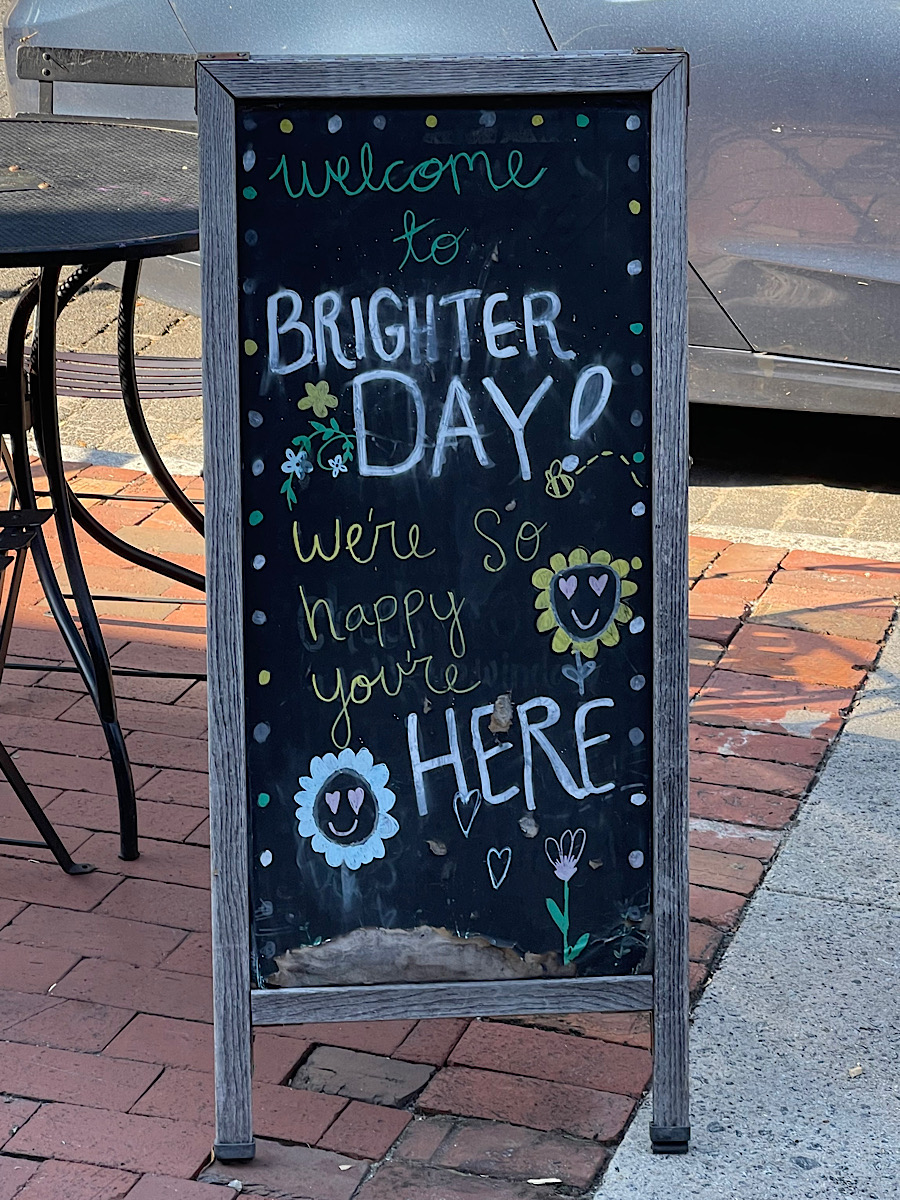 welcome
to
BRIGHTER
DAY!
we're so
happy
you're
HERE